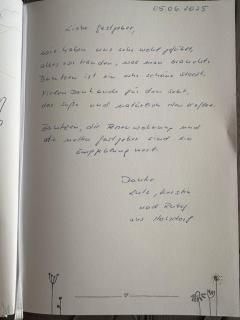 05.06.2025
Liebe Gastgeber,
wir haben uns sehr wohl gefühlt,
alles vorhanden, was man braucht.
Bautzen ist eine sehr schöne Stadt.
Vielen Dank auch für den Sekt,
das Süße und natürlich den Kaffee.
Bautzen, die Ferienwohnung und
die netten Gastgeber sind eine
Empfehlung wert.
Danke
Lutz, Kerstin
und Ruby
aus